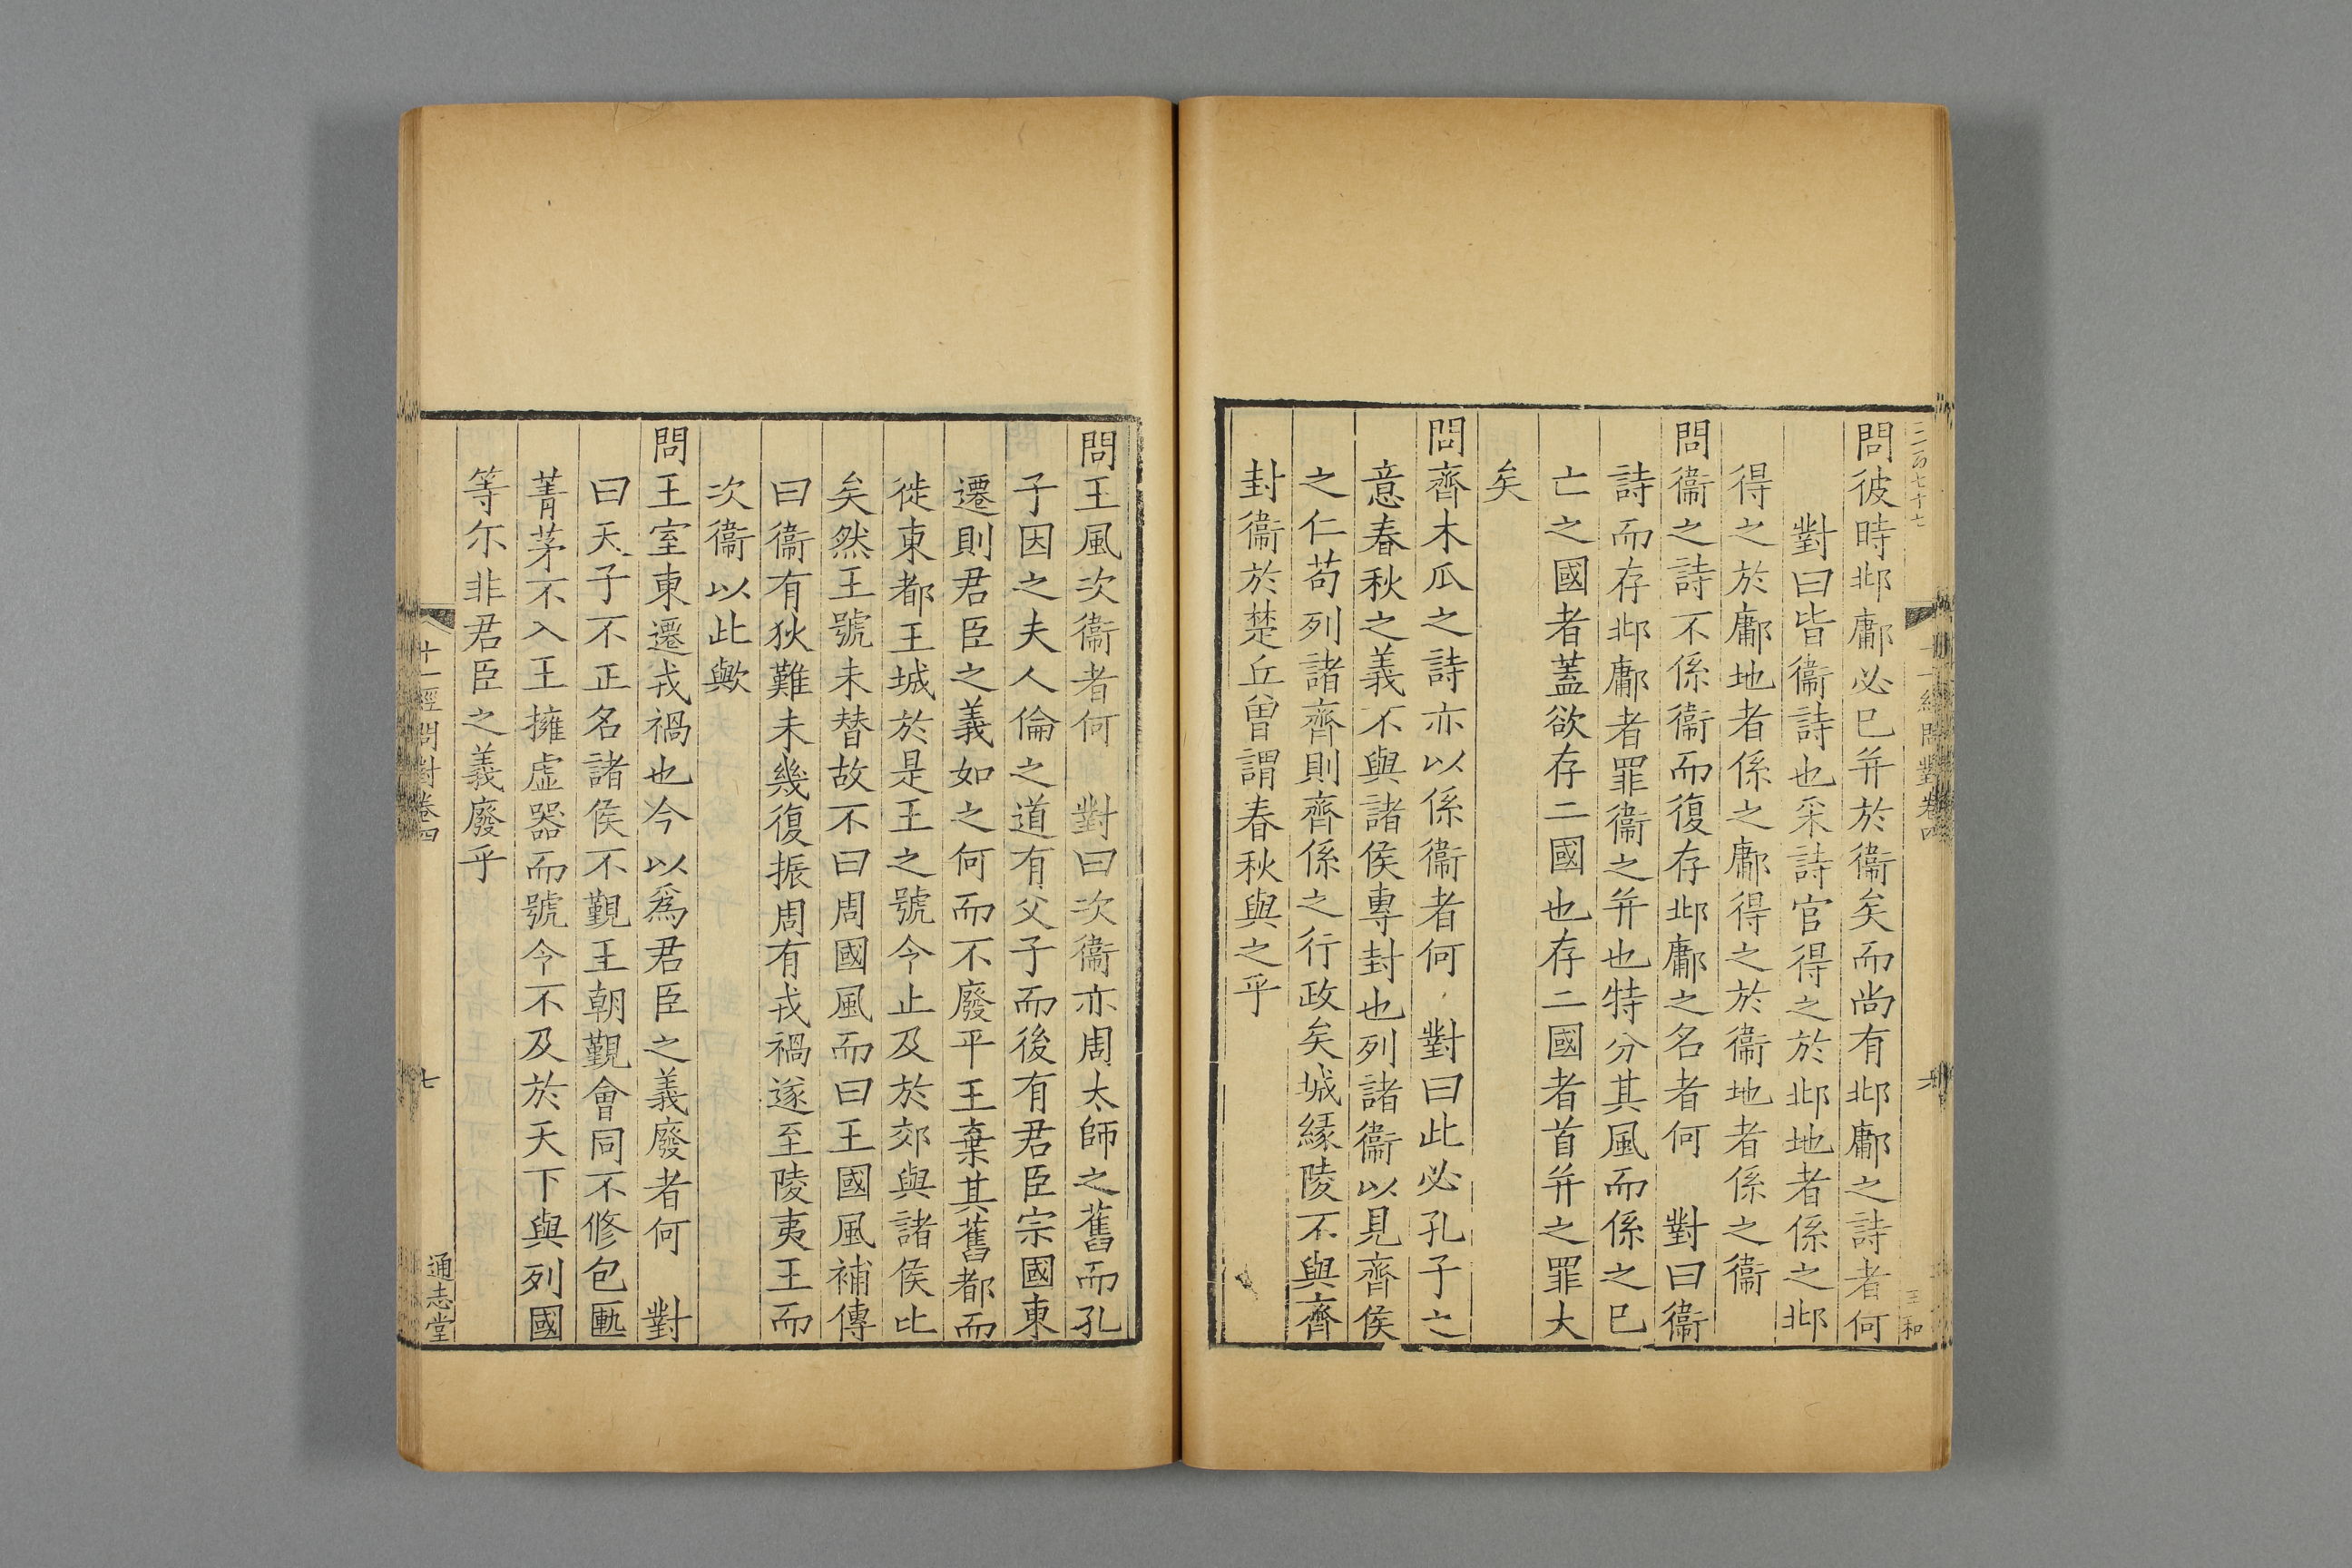 問彼時邶鄘必已并於衞矣而尚有邶鄘之詩者何
對曰皆衞詩也采詩官得之於邶地者係之邶
得之於鄘地者係之鄘得之於衞地者係之衞
問衞之詩不係衞而復存邶鄘之名者何　對曰衞
詩而存邶鄘者罪衞之并也特分其風而係之已
亡之國者蓋欲存二國也存二國者首并之罪大
矣
問齊木瓜之詩亦以係衞者何　對曰此必孔子之
意春秋之義不與諸侯專封也列諸衞以見齊侯
之仁苟列諸齊則齊係之行政矣城緣陵不與齊
封衞於楚丘曾謂春秋與之乎
王和
問王風次衞者何　對曰次衞亦周太師之舊而孔
子因之夫人倫之道有父子而後有君臣宗國東
遷則君臣之義如之何而不廢平王棄其舊都而
徙東都王城於是王之號令止及於郊與諸侯比
矣然王號未替故不曰周國風而曰王國風補傳
曰衞有狄難未幾復振周有戎禍遂至陵夷王而
次衞以此歟
問王室東遷戎禍也今以爲君臣之義廢者何　對
曰天子不正名諸侯不覲王朝覲會同不修包匭
菁茅不入王擁虛器而號令不及於天下與列國
等尔非君臣之義廢乎
十一經問對卷四
七
通志堂